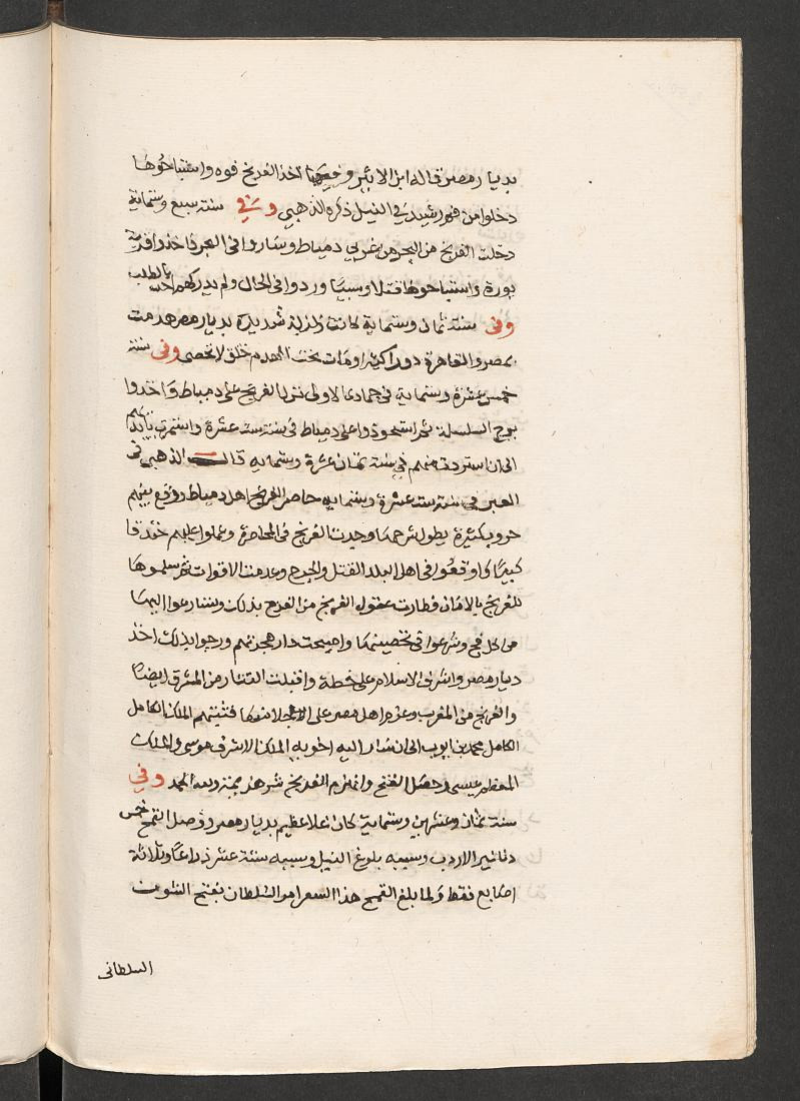 بديار مصر قاله ابن الاثير وفيها اخذ الفرنج فوه واستباحوها
دخلوا من فم رشيد في النيل ذكره الذهبي وفي سنة سبع وستماية
دخلت الفرنج من البحر من غربي دمياط وساروا في البر فاخذوا قرية
بورة واستباحوها قتلا وسبيا وردوا في الحال ولم يدركهم الطلب
وفي سنة ثمان وستماية كانت زلزلة شديدة بديار مصر هدمت
بمصر والقاهرة دورا كثيرة ومات تحت الهدم خلق لا تحصى وفي سنة
خمس عشرة وستماية في جمادى الاولى نزل الفرنج على دمياط واخذوا
برج السلسلة ثم استحوذوا على دمياط في سنة ست عشرة واستمرت بايديهم
الى ان استردت منهم في سنة ثمان عشرة وستمايه قال الذهبي في
العبر في سنة ست عشرة وستمايه حاصر الفرنج اهل دمياط ووقع بينهم
حروب كثيرة يطول شرحها وجدت الفرنج في المحاصرة وعملوا عليهم خندقا
كبيرا واوقعوا في اهل البلد القتل والجرح وعدمت الاقوات ثم سلموها
للفرنج بالامان فطارت عقول الفرنج من الفرح بذلك وتسارعوا اليها
من كل فج وشرعوا في تحصينها واصبحت دار هجرتهم ورجوا بذلك اخذ
ديار مصر واشرف الاسلام على خطة واقبلت التتار من المشرق ايضا
والفرنج من المغرب وعزم اهل مصر على الجلا منها فثبتهم الملك الكامل
الكامل محمد بن ايوب الى ان سار اليه اخويه الملك الاشرف موسى والملك
المعظم عيسى وحصل الفتح وانهزم الفرنج شر هزيمة ولله الحمد وفي
سنة ثمان وعشرين وستماية كان الغلا عظيم بديار مصر ووصل القمح خمس
دنانير الاردب وسببه بلوغ النيل وسببه ستة عشر ذراعا وثلاثة
اصابع فقط ولما بلغ القمح هذا السعر امر السلطان بفتح الشون
السلطاني